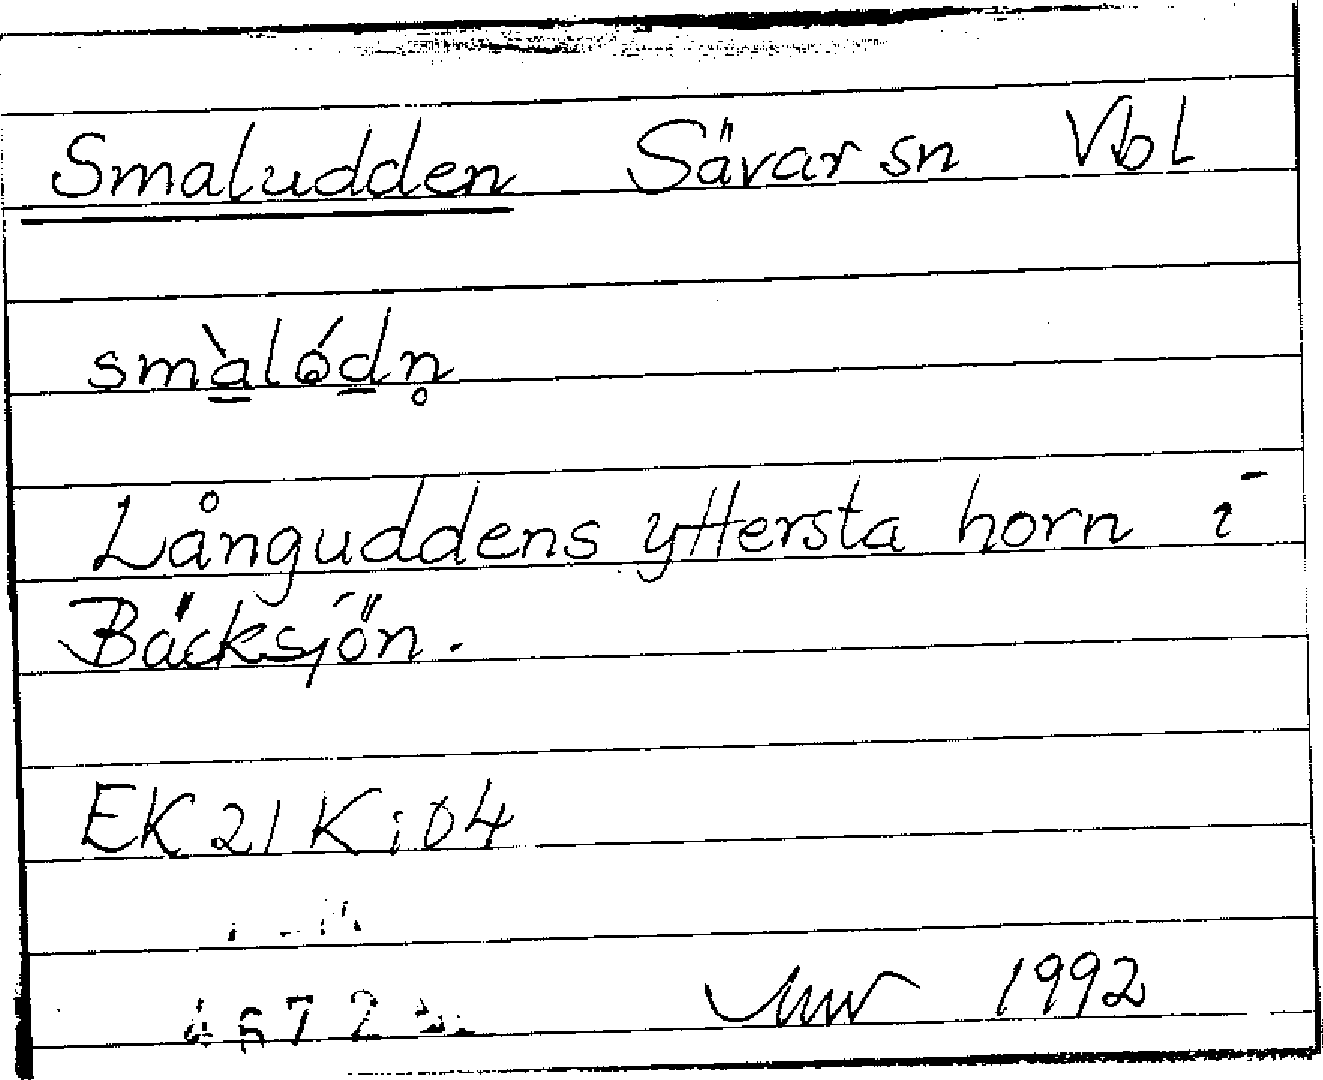 Smaludden Sävar sn Vbl
smàlódn̥
Långuddens yttersta horn i
Bäcksjön.
EK 21 K i 04
1992